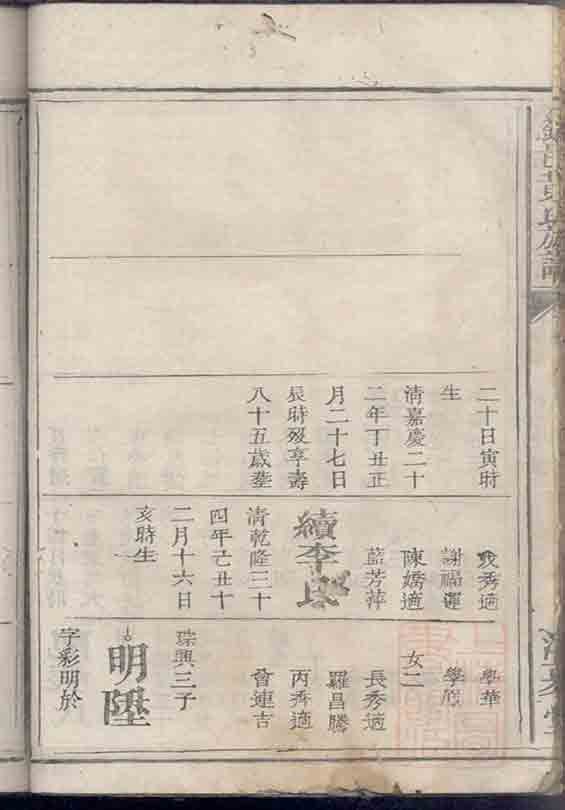 二十日寅時
生
清嘉慶二十
二年丁丑正
月二十七日
辰時殁享壽
八十五歲塟
秀適
謝福運
陳嬌適
藍芳萍
續李氏
清乾隆三十
四年己丑十
二月十六日
亥時生
學華
學
女二
長秀適
羅昌騰
丙秀適
曾連吉
珠興三子
明陞
字彩明於
氏族譜